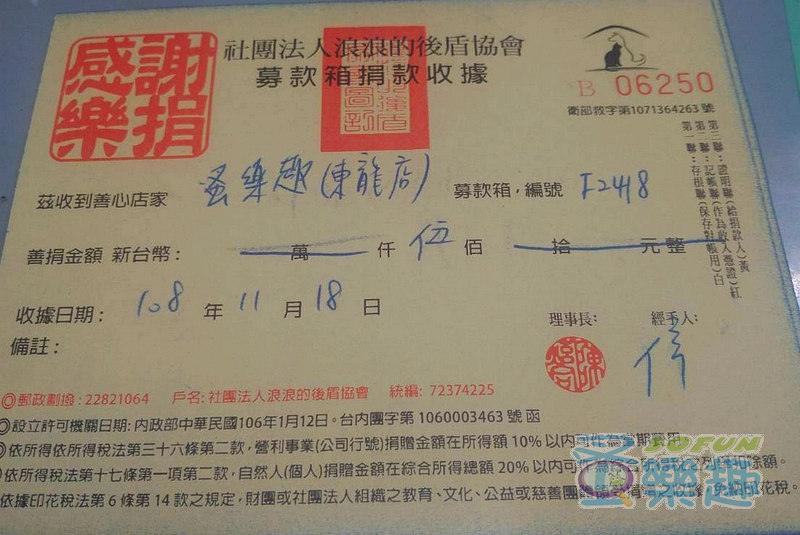 感謝
樂捐
社團法人浪浪的後盾協會
募款箱捐款收據
B 06250
衛部救字第1071364263號
茲收到善心店家 蚤樂趣(東龍店) 募款箱，編號 F2418
善捐金額 新台幣： 萬 仟 伍 佰 拾 元整
收據日期： 108 年 11 月 18 日
備註：
理事長： 經手人：
第一聯：存根聯(保存對帳用)白
第二聯：記帳聯(作為收入憑證)紅
第三聯：證明聯(給捐款人)黃
◎郵政劃撥：22821064 戶名：社團法人浪浪的後盾協會 統編：72374225
◎設立許可機關日期：內政部中華民國106年1月12日。台內團字第1060003463 號函
◎依所得依所得稅法第三十六條第二款，營利事業(公司行號)捐贈金額在所得額 10% 以內可作為當期費用
◎依所得稅法第十七條第一項第二款，自然人(個人)捐贈金額在綜合所得總額 20% 以內可
依據印花稅法第 6 條第 14 款之規定，財團或社團法人組織之教育、文化、公益或慈善團體領受捐贈之收據，免納印花稅。
蚤樂趣